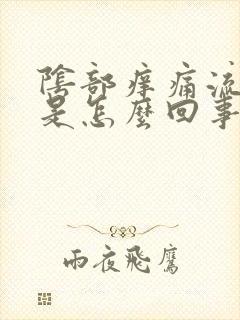 陰部痒痛流
是怎麼回事
雨夜飛鷹